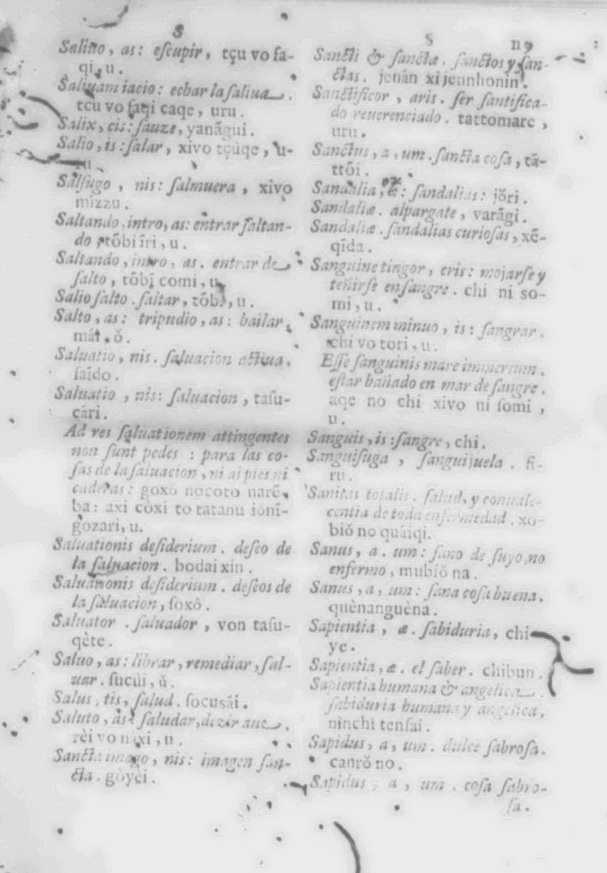 S
Saliuo, as: escupir, tçu vo fa-
qi, u.
Saliuam iacio: echar la saliua.
tçu vo faqi caqe, uru.
Salix, cis: sauze, yanãgui.
Salio, is: salar, xivo tçuqe, u-
ru.
Salsugo, nis: salmuera, xivo
mizzu.
Saltando, intro, as: entrar saltan-
do, tõbi iri, u.
Saltando, intro, as. entrar de
salto, tõbi comi, u.
Salio salto. saltar, tõbi, u.
Salto, as: tripudio, as: bailar,
mai, ŏ.
Saluatio, nis. saluacion actiua.
saido.
Saluatio, nis: saluacion, tasu-
cari.
Ad res saluationem attingentes
non sunt pedes: para las co-
sas de la saluacion, ni ai pies ni
caderas: goxŏ nocoto narẽ-
ba: axi coxi to tatanu ioni-
gozari, u.
Saluationis desiderium. deseo de
la saluacion. bodaixin.
Saluationis desiderium. deseos de
la saluacion, soxô.
Saluator. saluador, von tasu-
qète.
Saluo, as: librar, remediar, sal-
uar. sucui, ŭ.
Salus, tis, salud. socusái.
Saluto, as: saludar, dezir aue.
rèi vo naxi, u.
Sancta imago, nis: imagen san-
cta. gòyèi.
S 119
Sancti & sanctæ. sanctos y san-
ctas. jenân xi jennhonin.
Sanctificor, aris. ser santifica-
do reuerenciado. tattomare,
uru.
Sanctus, a, um. sancta cosa, tã-
ttŏi.
Sandalia, æ: sandalias: jŏri.
Sandaliæ. alpargate, varãgi.
Sandaliæ. sandalias curiosas, xẽ-
qida.
Sanguine tingor, eris: mojarse y
teñirse en sangre. chi ni so-
mi, u.
Sanguinem minuo, is: sangrar.
chi vo tori, u.
Esse sanguinis mare immersum.
estar bañado en mar de sangre.
aqe no chi xivo ni somi,
u.
Sanguis, is: sangre, chi.
Sanguisuga, sanguijuela. fi-
ru.
Sanitas totalis. salud, y conuale-
centia de toda enfermedad. xo-
biŏ no quàiqi.
Sanus, a, um: sano de suyo, no
enfermo, mubiŏ na.
Sanus, a, um: sana cosa buena.
quènanguèna.
Sapientia, æ. sabiduria, chi-
ye.
Sapientia, æ. el saber. chibun.
Sapientia humana & angelica.
sabiduria humana y angelica,
ninchi tensai.
Sapidus, a, um. dulce sabrosa.
canrŏ no.
Sapidus, a, um. cosa sabro-
sa.